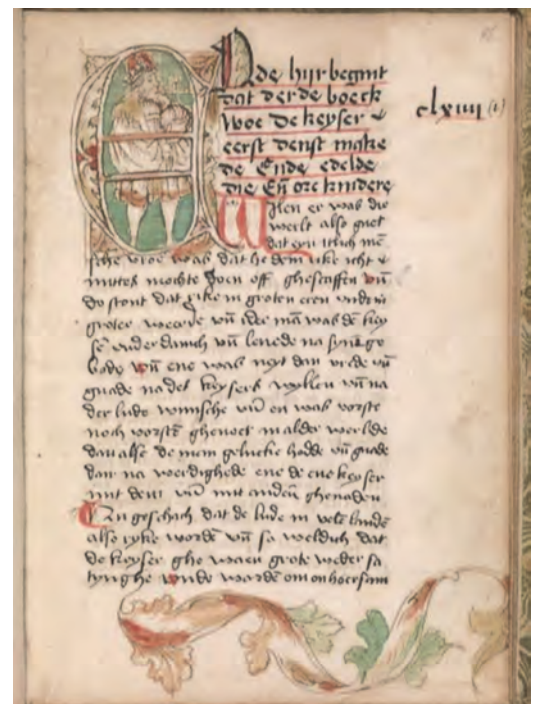 Nde hijr begint
dat derde boeck
woe de keyser
eerst denst makede
de Ende edelde
die Eñ ore kindere
clxiiii (1)
er was die
werlt also guet
dat eyn itlich mē
sche vroe was dat he dem rike icht
nuttes mochte doen off ghescaffen vñ
do stont dat rike in groten eren vnde in
groter weerde vñ was dē key
onderdanich vñ leuede na
vñ ene was neyt dan vrede vñ
gnade na des keysers wyllen vñ na
der lude wunsche vñ en was vorste
noch vorstē ghenoet in alder werlde
dan alse de mein gelucke hadde vñ gnade
dar na werdighede ene de keyser
mit dem vñ mit anderē ghenaden
geschach dat de lude in velē landē
also ryke wordē vñ so weldich dat
de keyser grote weder sa
tynghe vnde wardē onhoersam